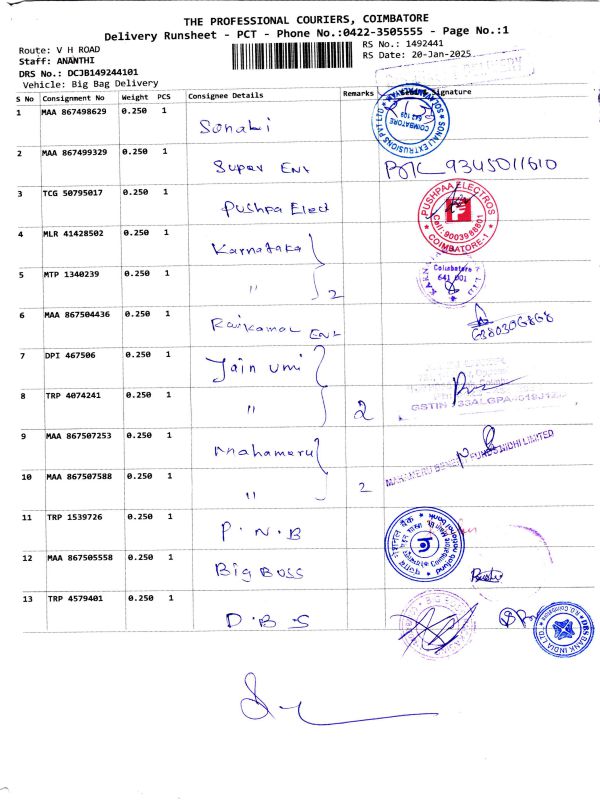 THE PROFESSIONAL COURIERS, COIMBATORE
Delivery Runsheet - PCT - Phone No.:0422-3505555 - Page No.:1
Route: V H ROAD
RS No.: 1492441
Staff: ANANTHI
RS Date: 20-Jan-2025
DRS No.: DCJB149244101
Vehicle: Big Bag Delivery
S No Consignment No Weight PCS Consignee Details Remarks Signature
1 MAA 867498629 0.250 1 Sonali
SONALI EXTRUSIONS PVT LTD
COIMBATORE
2 MAA 867499329 0.250 1 Super Ent 9345011610
3 TCG 50795017 0.250 1 Pushpa Elect
PUSHPAA ELECTROS
Cell: 9003988801
COIMBATORE-1
4 MLR 41428502 0.250 1 Karnataka
5 MTP 1340239 0.250 1 " 2
Coimbatore
641 001
6 MAA 867504436 0.250 1 Rajkamal Ent
7 DPI 467506 0.250 1 Jain umi
8 TRP 4074241 0.250 1 " 2
GSTIN
9 MAA 867507253 0.250 1 Mahameru
FUNDS NIDHI LIMITED
10 MAA 867507588 0.250 1 " 2
11 TRP 1539726 0.250 1 P.N.B
punjab national bank
12 MAA 867505558 0.250 1 Big Boss
13 TRP 4579401 0.250 1 D.B.S
DBS BANK INDIA LTD